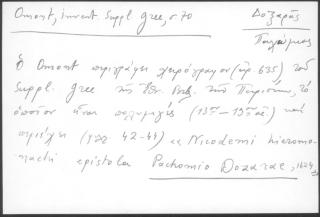 Omont, invent. Suppl. grec, σ. 70
Δοξαρᾶς
Παχώμιος
Ὁ Omont περιγράφει χειρόγραφον (ἀρ. 635) τοῦ
Suppl. grec τῆς Ἐθν. Βιβ. τῶν Παρισίων, τὸ
ὁποῖον εἶναι πολυμιγές (13ου – 19ου αἰ.) καὶ
περιέχει (φφ. 42-47) «Nicodemi hieromo-
nachi epistola Pachomio Doxarae, 1624»